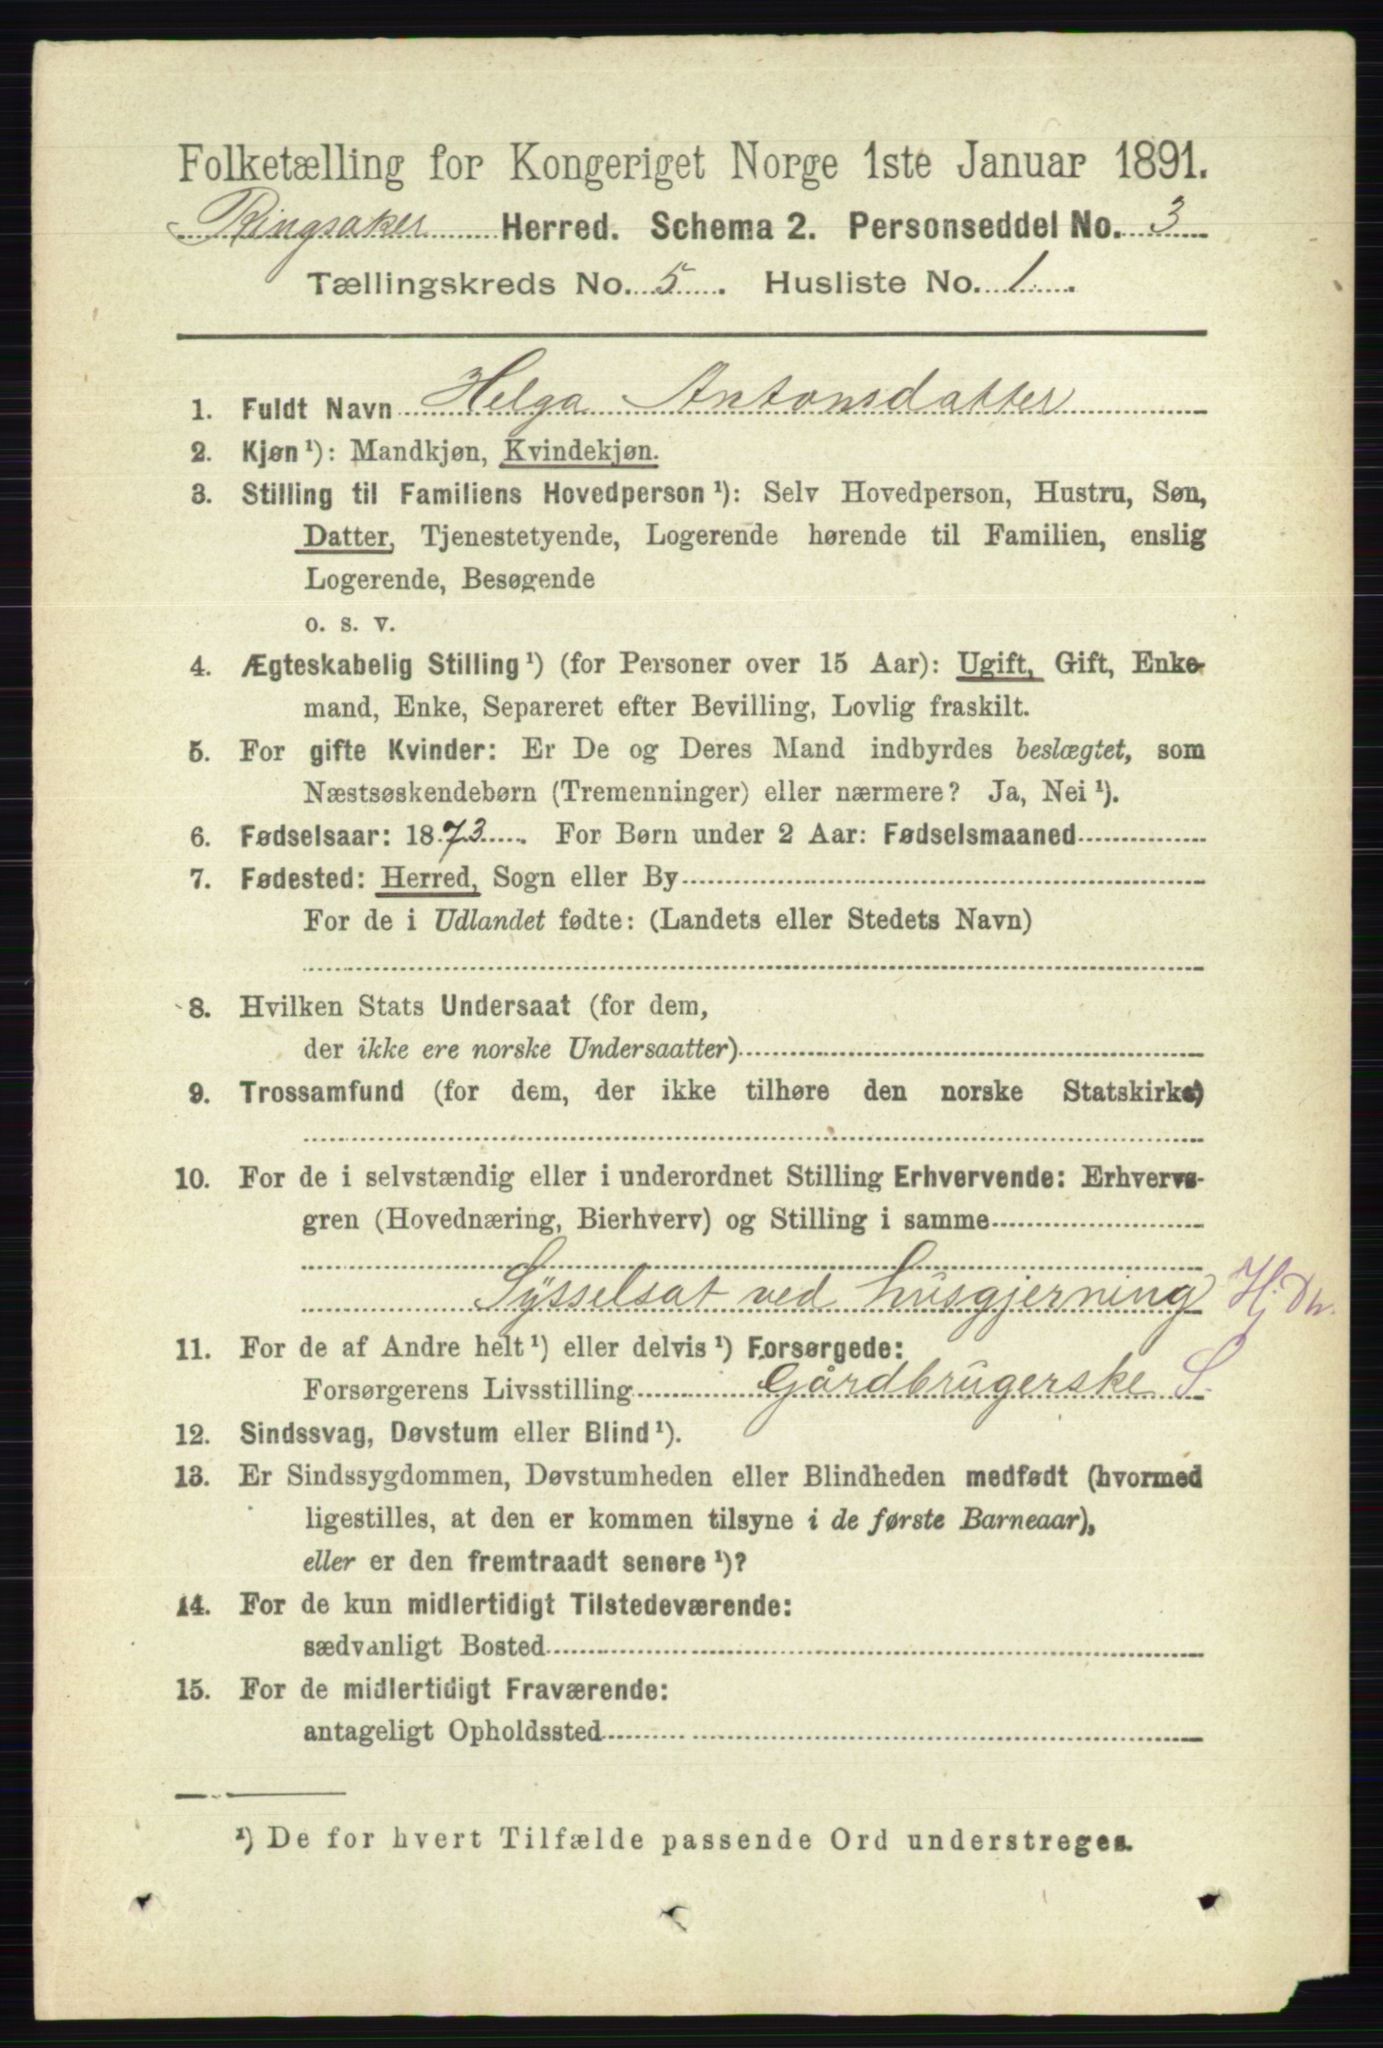 Folketælling for Kongeriget Norge 1ste Januar 1891.
Ringsaker Herred. Schema 2. Personseddel No. 3
Tællingskreds No. 5. Husliste No. 1.
1. Fuldt Navn Helga Antonsdatter
2. Kjøn ¹): Mandkjøn, Kvindekjøn.
3. Stilling til Familiens Hovedperson ¹): Selv Hovedperson, Hustru, Søn,
Datter, Tjenestetyende, Logerende hørende til Familien, enslig
Logerende, Besøgende
o. s. v.
4. Ægteskabelig Stilling ¹) (for Personer over 15 Aar): Ugift, Gift, Enke-
mand, Enke, Separeret efter Bevilling, Lovlig fraskilt.
5. For gifte Kvinder: Er De og Deres Mand indbyrdes beslægtet, som
Næstsøskendebørn (Tremenninger) eller nærmere? Ja, Nei ¹).
6. Fødselsaar: 1873. For Børn under 2 Aar: Fødselsmaaned
7. Fødested: Herred, Sogn eller By
For de i Udlandet fødte: (Landets eller Stedets Navn)
8. Hvilken Stats Undersaat (for dem,
der ikke ere norske Undersaatter)
9. Trossamfund (for dem, der ikke tilhøre den norske Statskirke)
10. For de i selvstændig eller i underordnet Stilling Erhvervende: Erhvervs-
gren (Hovednæring, Bierhverv) og Stilling i samme
Sysselsat ved husgjerning Hj. Dh.
11. For de af Andre helt ¹) eller delvis ¹) Forsørgede:
Forsørgerens Livsstilling Gårdbrugerske S.
12. Sindssvag, Døvstum eller Blind ¹).
13. Er Sindssygdommen, Døvstumheden eller Blindheden medfødt (hvormed
ligestilles, at den er kommen tilsyne i de første Barneaar),
eller er den fremtraadt senere ¹)?
14. For de kun midlertidigt Tilstedeværende:
sædvanligt Bosted
15. For de midlertidigt Fraværende:
antageligt Opholdssted
¹) De for hvert Tilfælde passende Ord understreges.